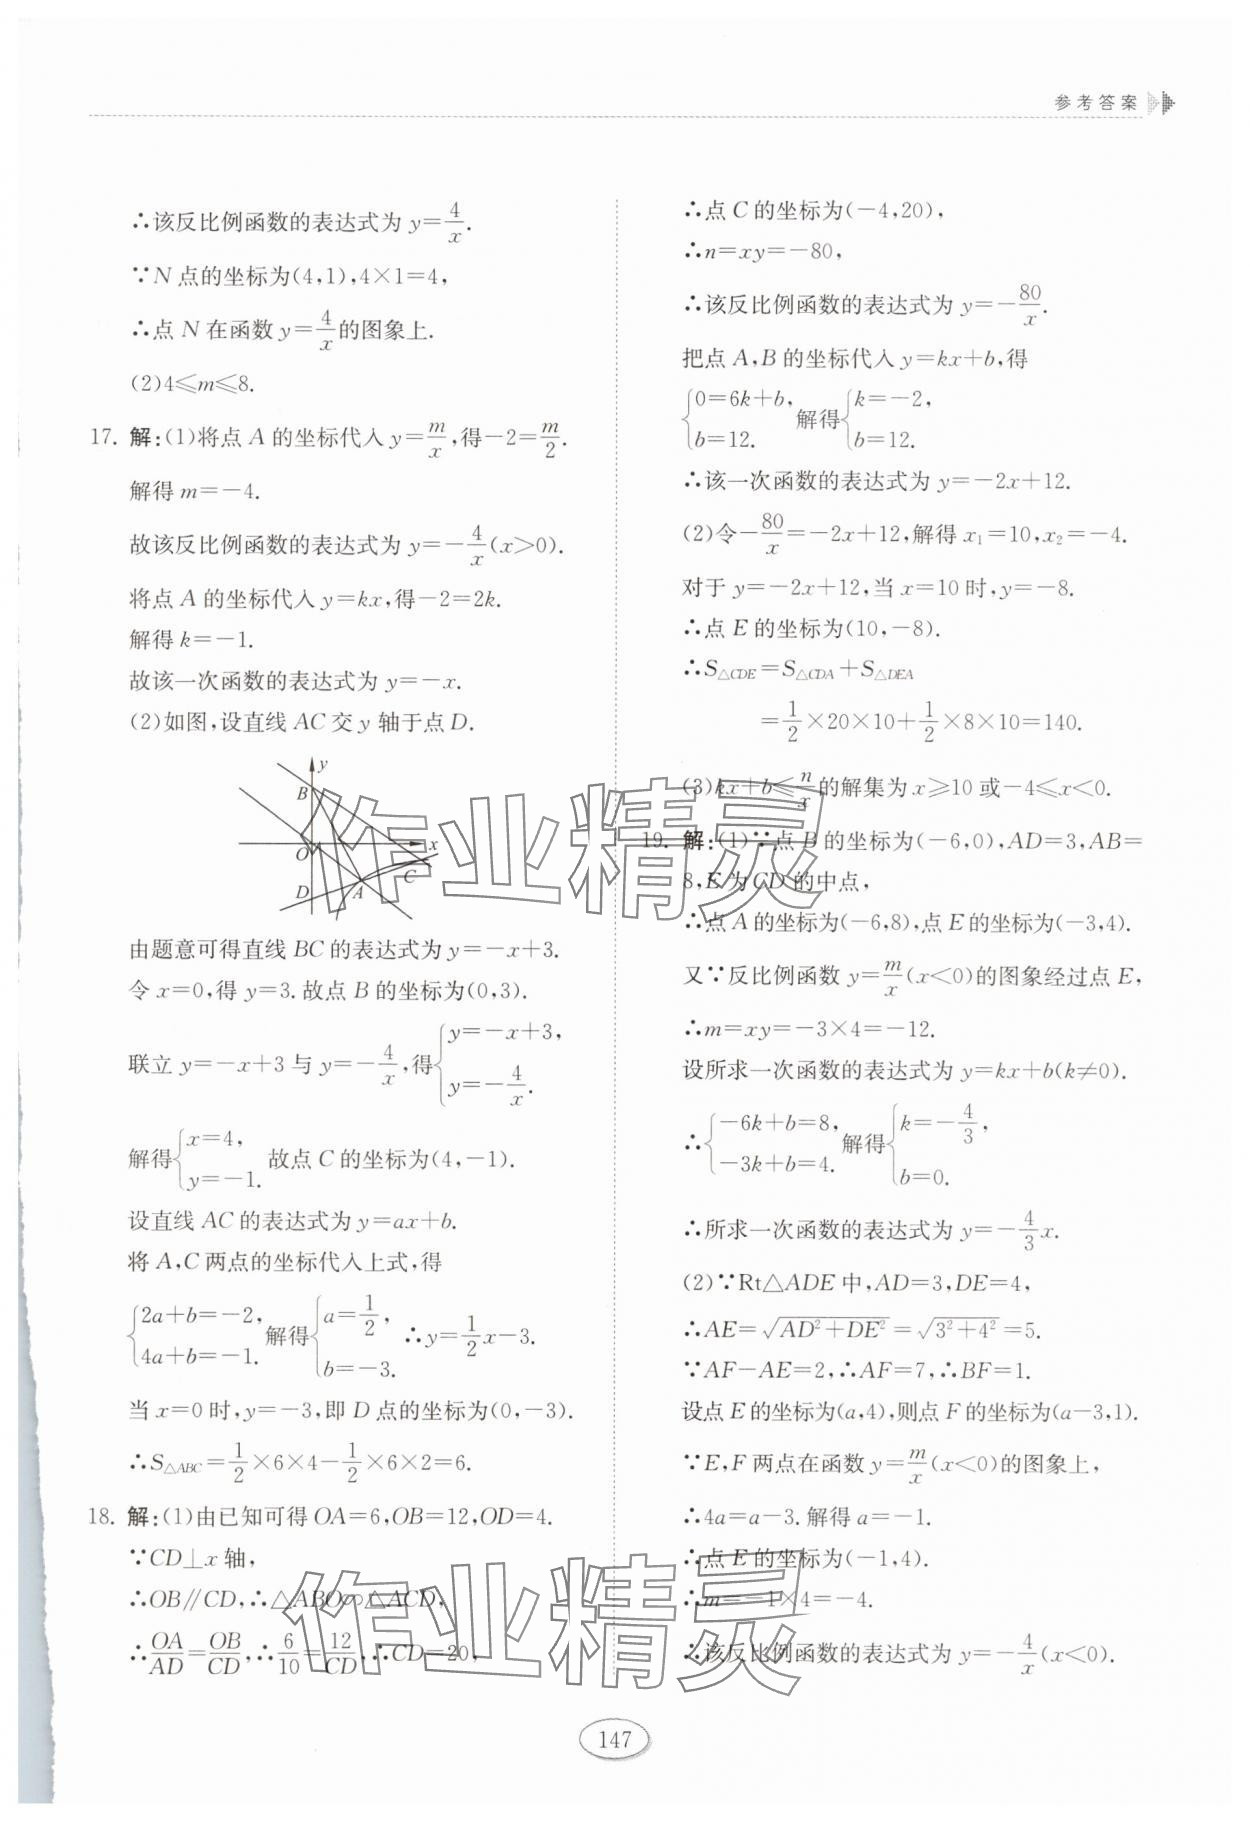 参考答案
∴该反比例函数的表达式为 y=4/x.
∵N 点的坐标为(4,1),4×1=4,
∴点 N 在函数 y=4/x 的图象上.
(2)4≤m≤8.
17. 解:(1)将点 A 的坐标代入 y=m/x,得-2=m/2.
解得 m=-4.
故该反比例函数的表达式为 y=-4/x(x>0).
将点 A 的坐标代入 y=kx,得-2=2k.
解得 k=-1.
故该一次函数的表达式为 y=-x.
(2)如图,设直线 AC 交 y 轴于点 D.
y
B
O
x
D
A
C
由题意可得直线 BC 的表达式为 y=-x+3.
令 x=0,得 y=3. 故点 B 的坐标为(0,3).
联立 y=-x+3 与 y=-4/x,得{y=-x+3, y=-4/x.
解得{x=4, y=-1. 故点 C 的坐标为(4,-1).
设直线 AC 的表达式为 y=ax+b.
将 A,C 两点的坐标代入上式,得
{2a+b=-2, 4a+b=-1. 解得{a=1/2, b=-3. ∴y=1/2x-3.
当 x=0 时,y=-3,即 D 点的坐标为(0,-3).
∴S△ABC=1/2×6×4-1/2×6×2=6.
18. 解:(1)由已知可得 OA=6,OB=12,OD=4.
∵CD⊥x 轴,
∴OB∥CD,∴△ABO∽△ACD,
∴OA/AD=OB/CD,∴6/10=12/CD,∴CD=20,
∴点 C 的坐标为(-4,20),
∴n=xy=-80,
∴该反比例函数的表达式为 y=-80/x.
把点 A,B 的坐标代入 y=kx+b,得
{0=6k+b, b=12. 解得{k=-2, b=12.
∴该一次函数的表达式为 y=-2x+12.
(2)令-80/x=-2x+12,解得 x₁=10,x₂=-4.
对于 y=-2x+12,当 x=10 时,y=-8.
∴点 E 的坐标为(10,-8).
∴S△CDE=S△CDA+S△DEA
=1/2×20×10+1/2×8×10=140.
(3)kx+b≤n/x 的解集为 x≥10 或-4≤x<0.
19. 解:(1)∵点 B 的坐标为(-6,0),AD=3,AB=
8,E 为 CD 的中点,
∴点 A 的坐标为(-6,8),点 E 的坐标为(-3,4).
又∵反比例函数 y=m/x(x<0)的图象经过点 E,
∴m=xy=-3×4=-12.
设所求一次函数的表达式为 y=kx+b(k≠0).
∴{-6k+b=8, -3k+b=4. 解得{k=-4/3, b=0.
∴所求一次函数的表达式为 y=-4/3x.
(2)∵Rt△ADE 中,AD=3,DE=4,
∴AE=√(AD²+DE²)=√(3²+4²)=5.
∵AF-AE=2,∴AF=7,∴BF=1.
设点 E 的坐标为(a,4),则点 F 的坐标为(a-3,1).
∵E,F 两点在函数 y=m/x(x<0)的图象上,
∴4a=a-3. 解得 a=-1.
∴点 E 的坐标为(-1,4).
∴m=-1×4=-4.
∴该反比例函数的表达式为 y=-4/x(x<0).
作业精灵
作业精灵
147